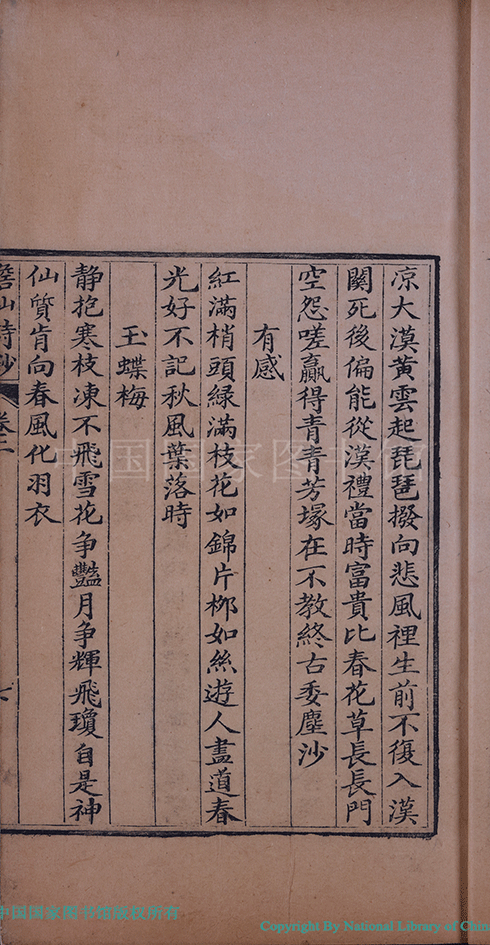 涼大漠黃雲起琵琶撥向悲風裡生前不復入漢
關死後偏能從漢禮當時富貴比春花草長長門
空怨嗟贏得青青芳塚在不教終古委塵沙
有感
紅滿梢頭綠滿枝花如錦片柳如絲遊人盡道春
光好不記秋風葉落時
玉蝶梅
静抱寒枝凍不飛雪花争豔月争輝飛瓊自是神
仙質肯向春風化羽衣
山詩鈔
卷二
七
中国国家图书馆
中国国家图书馆版权所有
Copyright By National Library of Chin